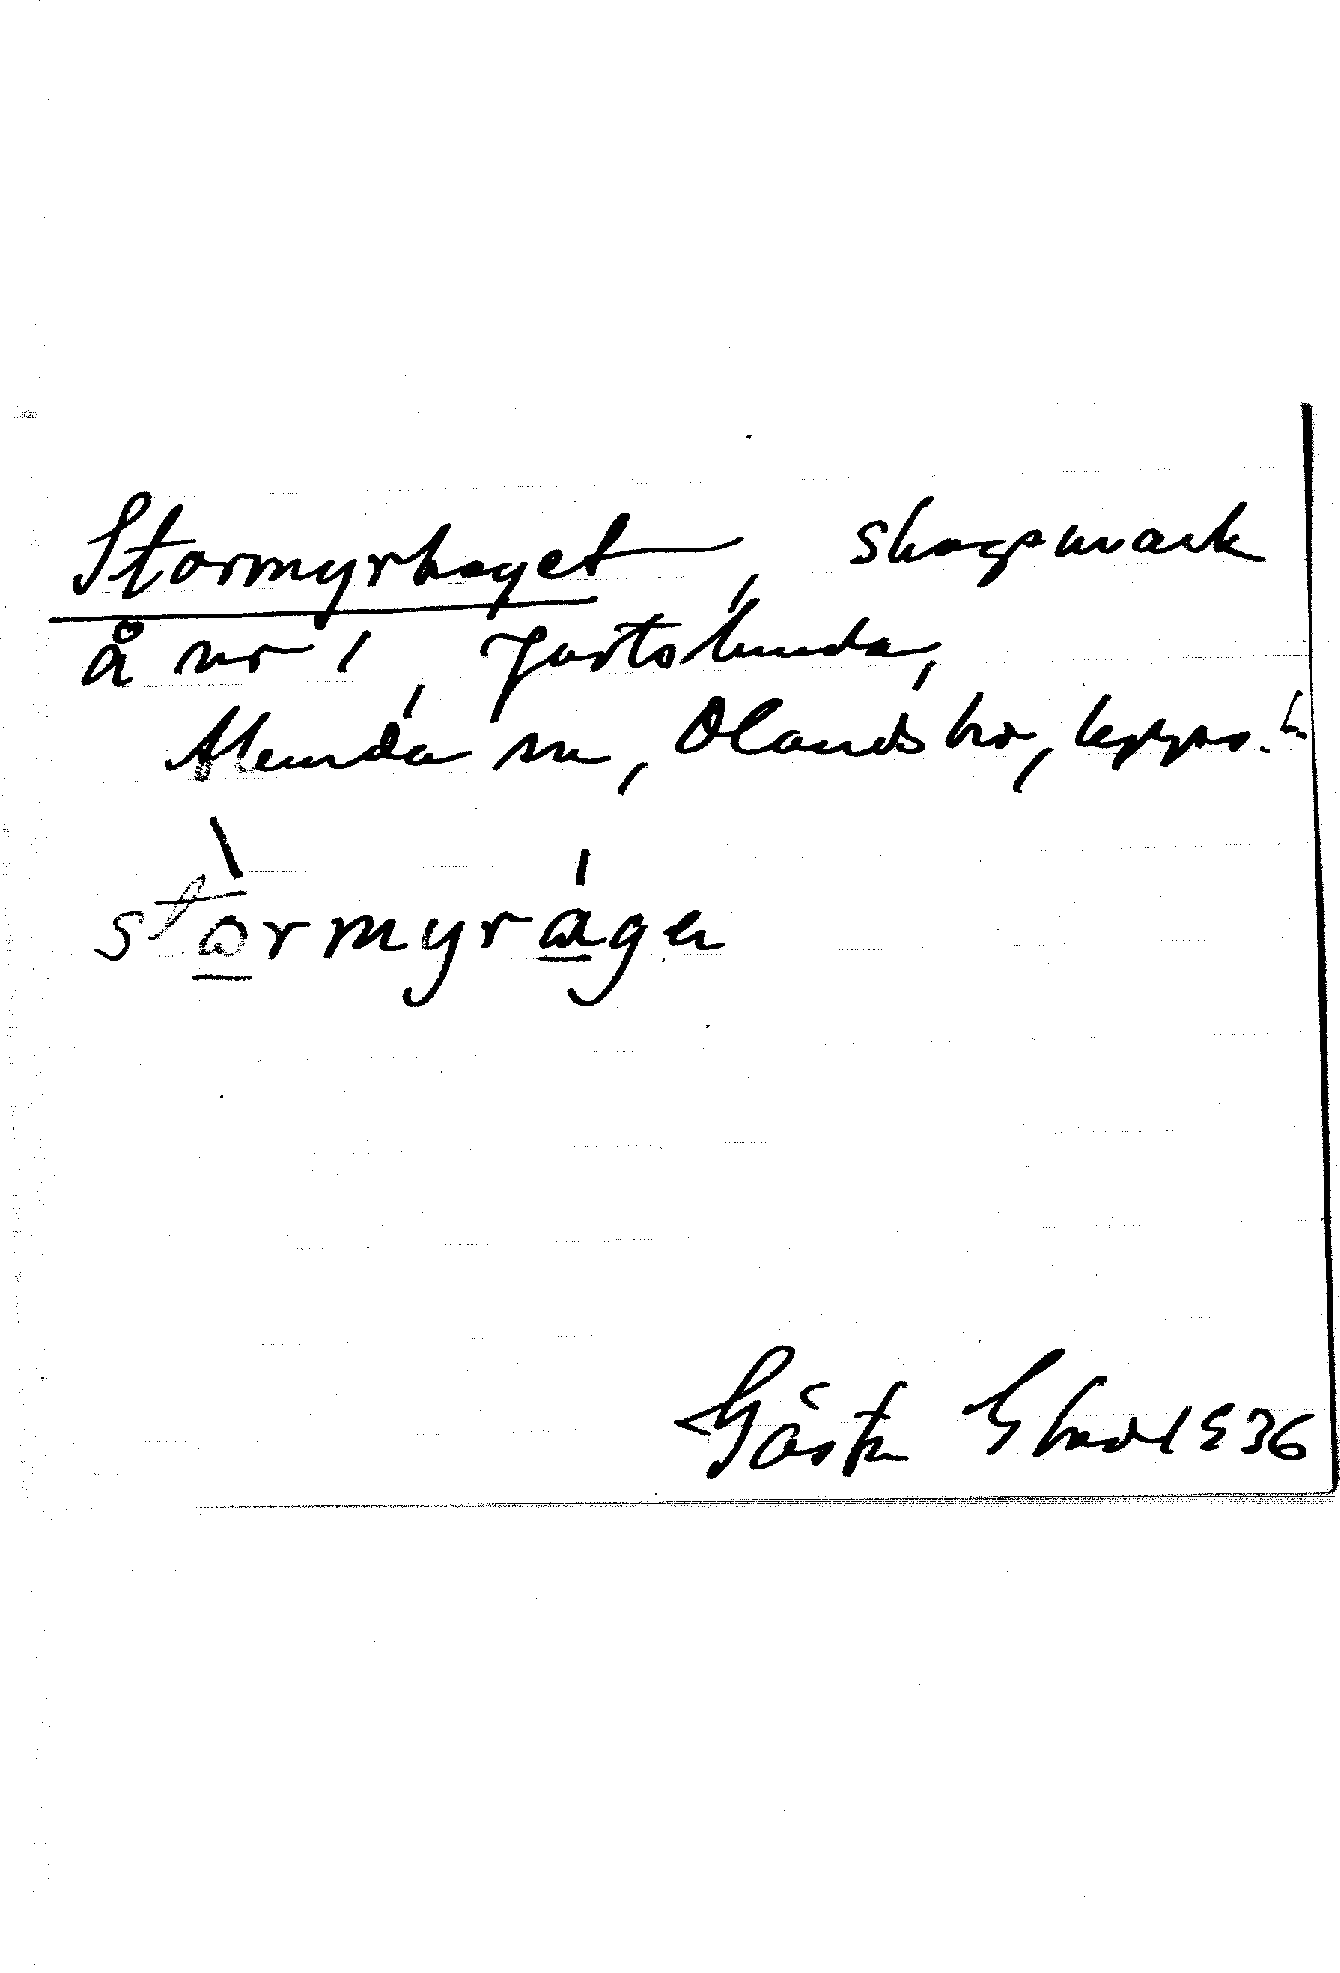 Stormyrhaget, skogsmark
å nr 1, Gvrtsbunda,
Alunda sn, Olands hd, Uppsa. L.
stòrmyrágen
Gösta Ekad 1936